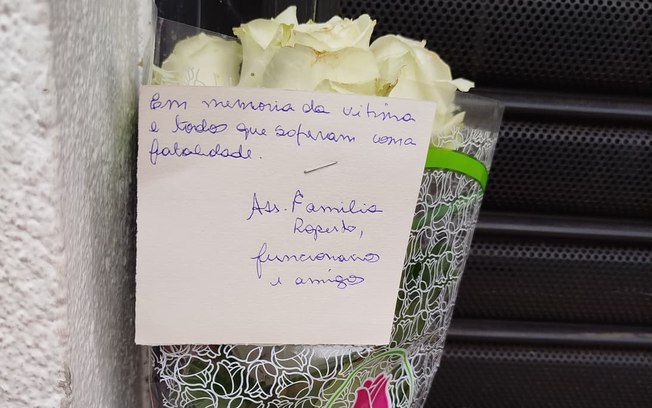 Em memoria da vitima
e todos que soferam com a
fatalidade.
Ass. Familia
Roperto,
funcionarios
e amigos